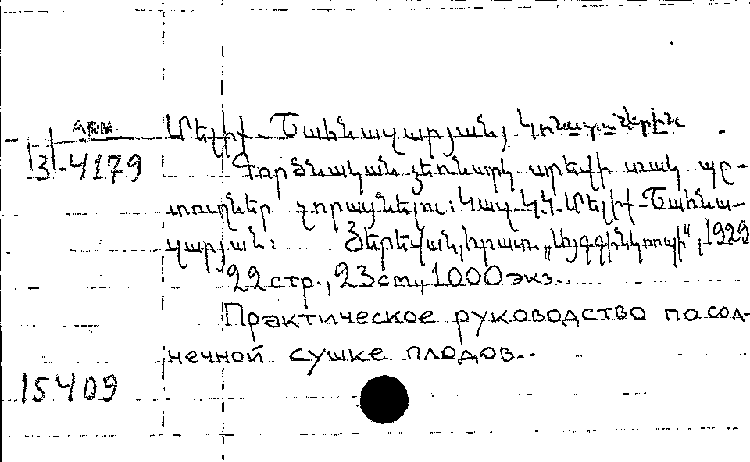 Арм.
Մելիք-Շահնազարյան, Կոնստանդին
3-4179
Գործնական ձեռնարկ արևի տակ պը-
տուղներ չորացնելու: Կազ. Կ. Մելիք-Շահնա-
զարյան: Յերեվան, հրատ. „Այգգինկոոպի", 1929
22 стр., 23 см, 1000 экз.
Практическое руководство по сол-
нечной сушке плодов.
15409